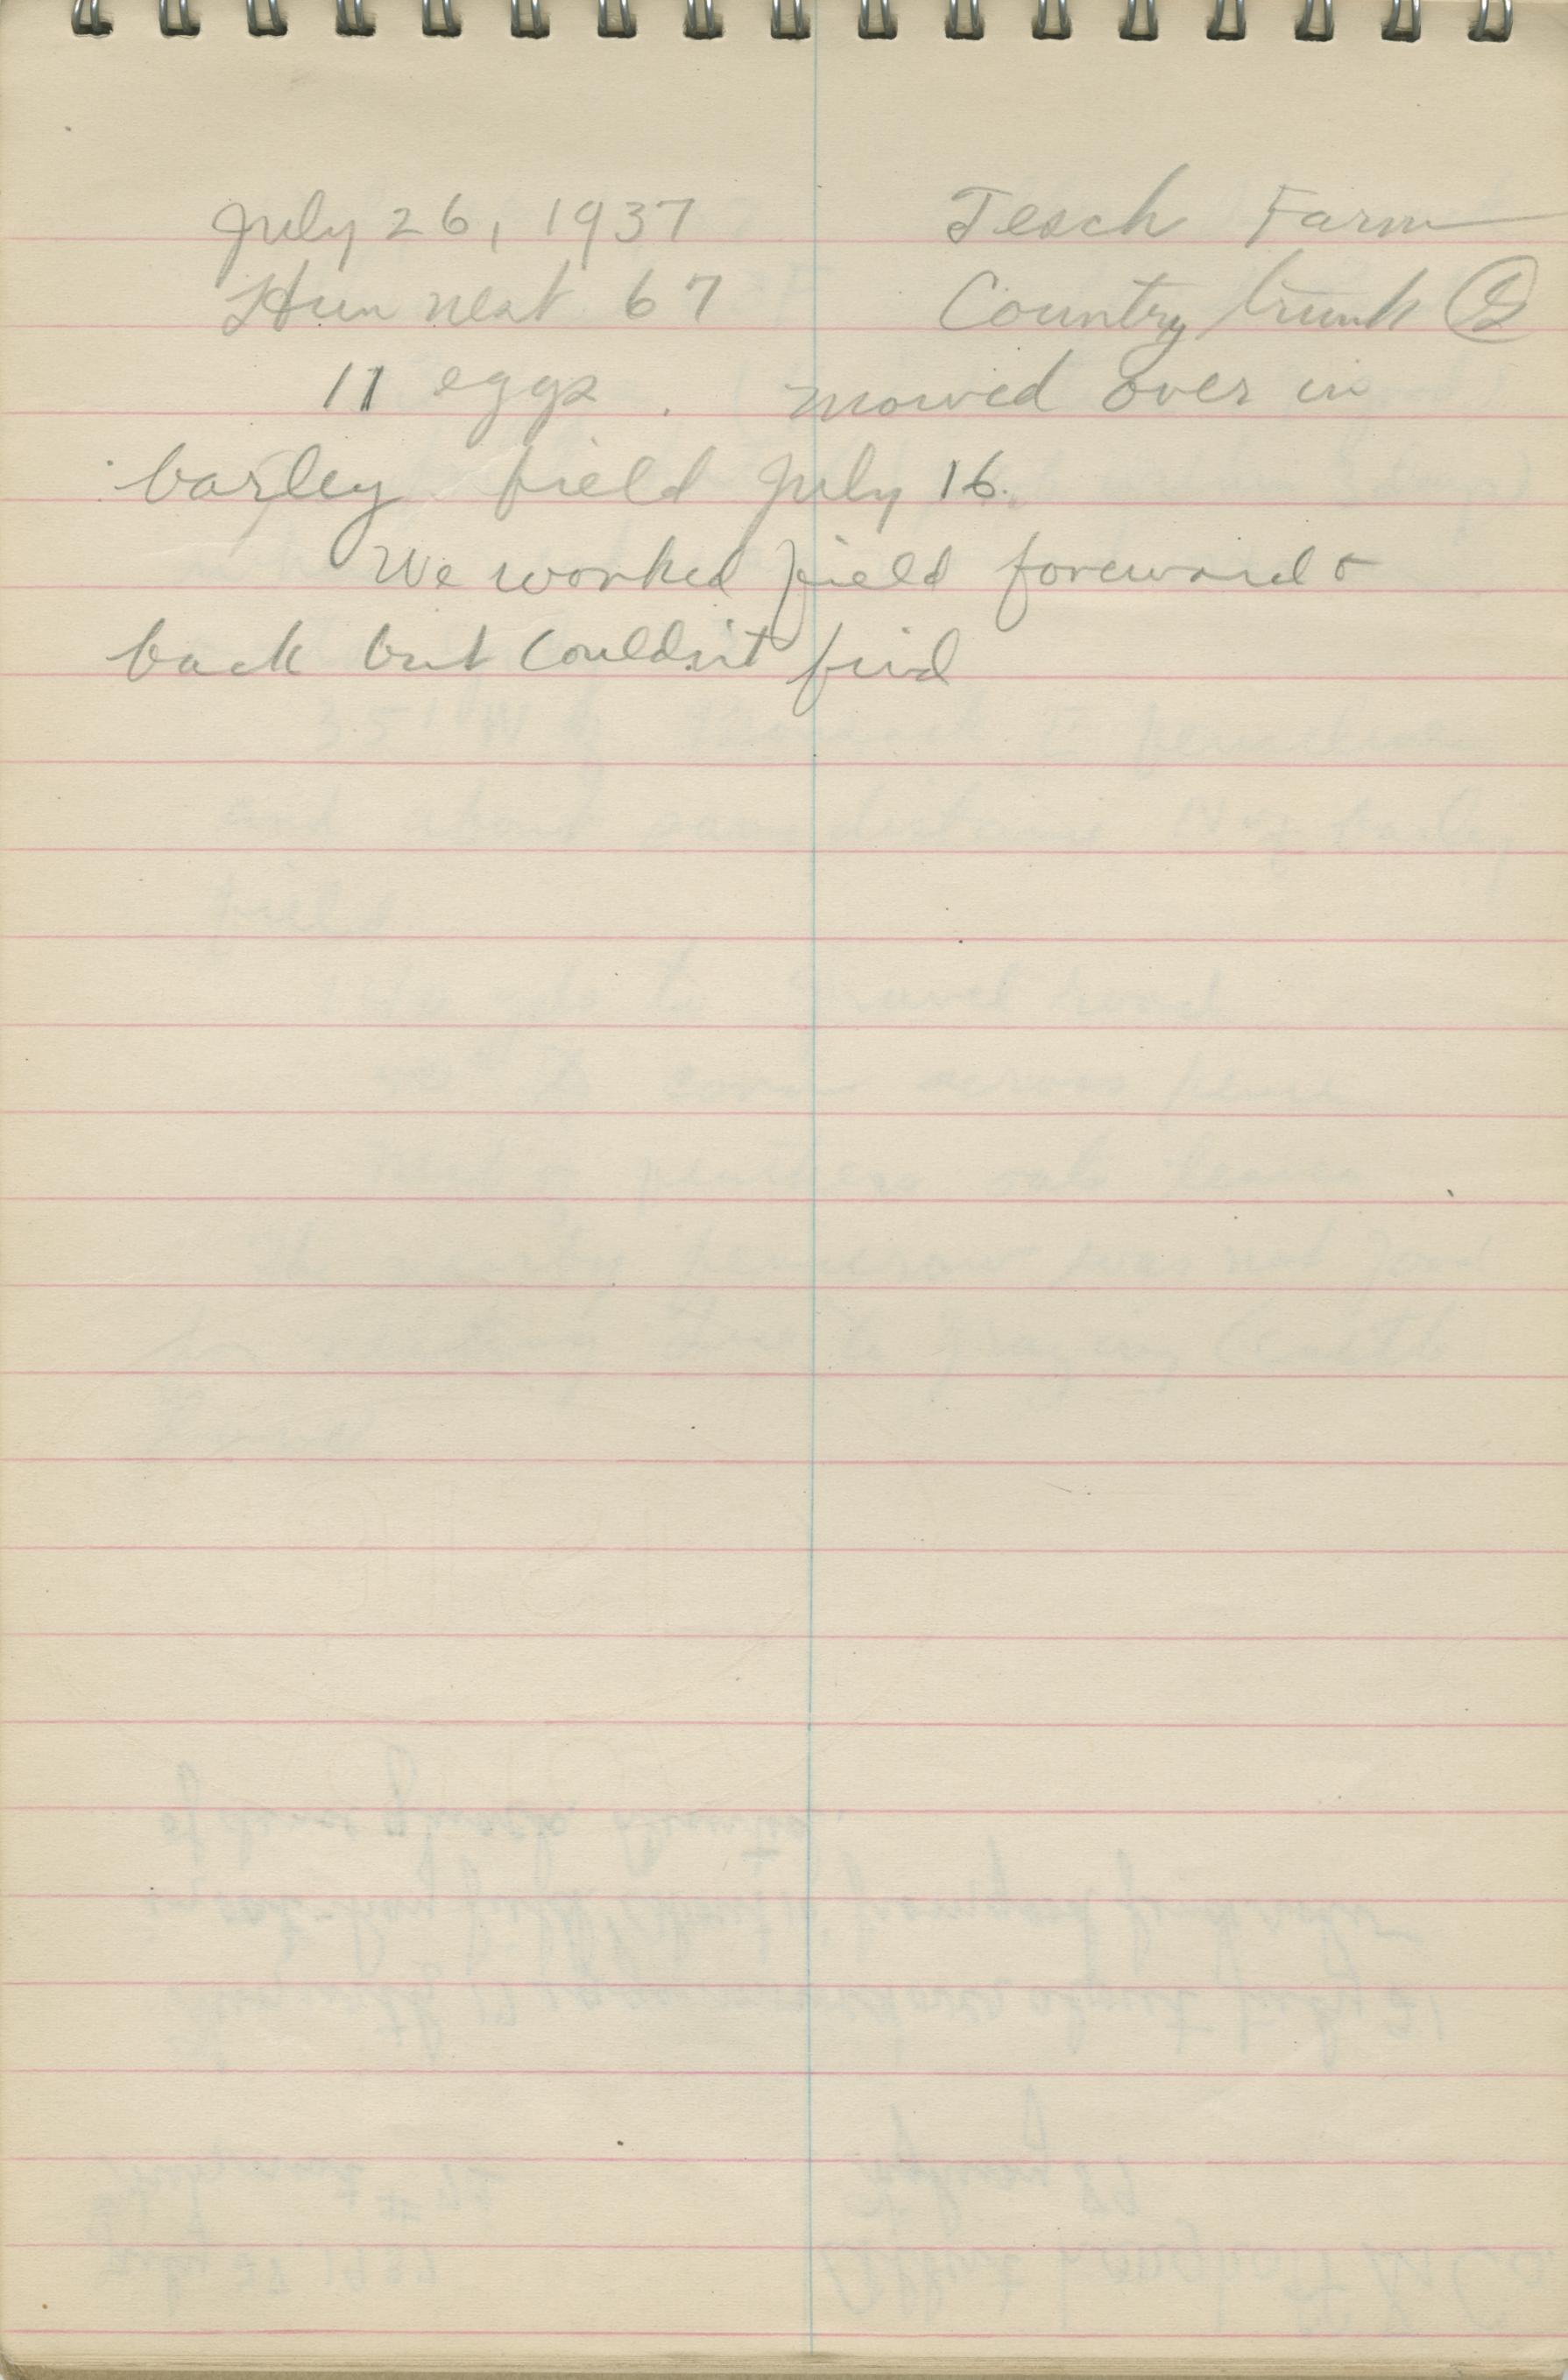 July 26, 1937 Tesch Farm
Hun nest 67 Country trunk
11 eggs. mowed over in
barley field July 16.
We worked field foreward &
back but couldn't find